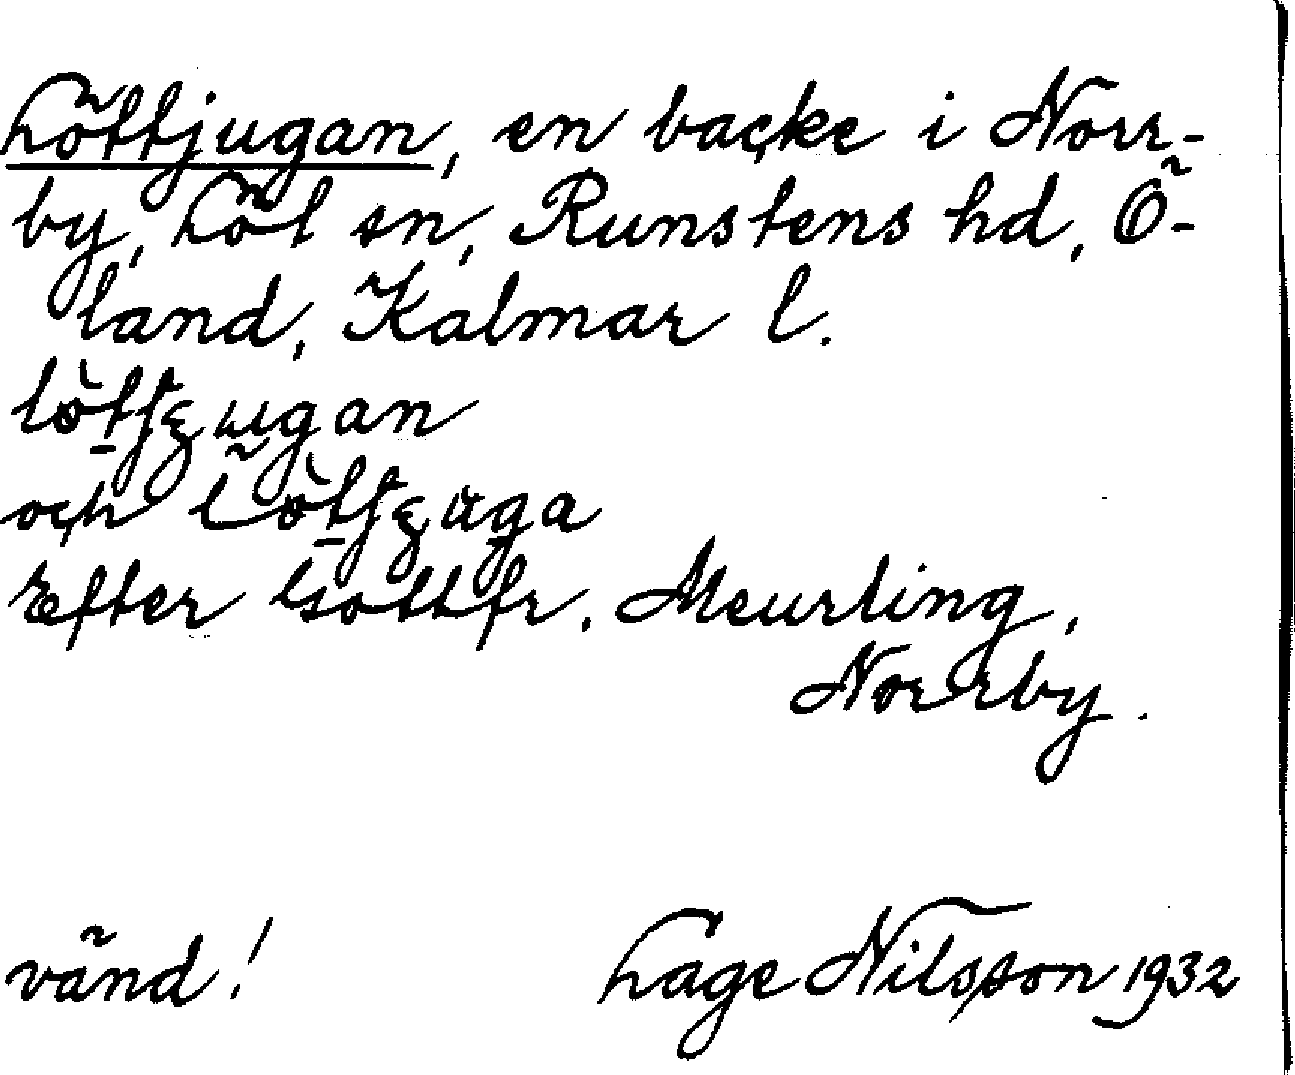 Löttjugan, en backe i Norr-
by, Löt sn, Runstens hd, Ö-
land, Kalmar l.
och
Efter Gottfr. Meurling,
Norrby.
vänd! Lage Nilsson 1932